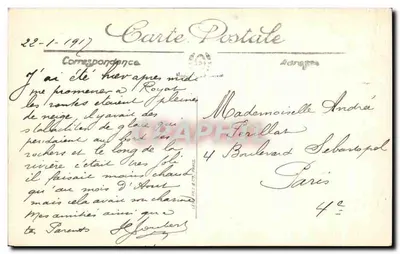 22-1-1917
Carte Postale
Correspondance
Adresse
J'ai été hier après midi
me promener à Royat
les routes étaient pleines
de neige, il y avait des
stalactites de glace qui
pendaient au bord des
rochers et le long de la
rivière c'était très joli
il faisait moins chaud
qu'au mois d'Août
mais cela avait son charme
Mes amitiés ainsi que
tes Parents
Mademoiselle André
4 Boulevard Sebastopol
Paris
4e